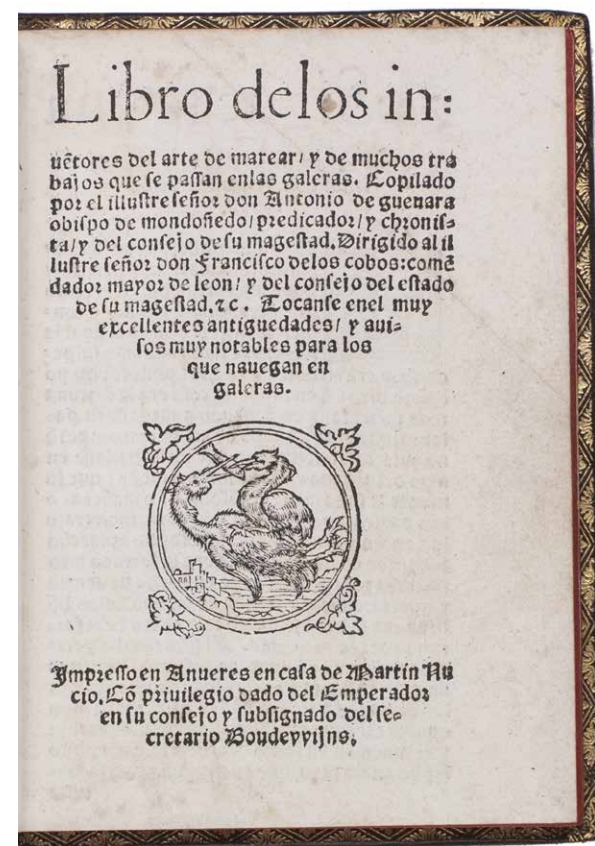 Libro delos in:
uẽtores del arte de marear/ y de muchos tra
bajos que se passan enlas galeras. Copilado
por el illustre señor don Antonio de gueuara
obispo de mondoñedo/predicador/y chronis-
ta/y del consejo de su magestad.Dirigido al il
lustre señor don Francisco delos cobos:comẽ
dador mayor de leon/ y del consejo del estado
de su magestad.⁊c. Tocanse enel muy
excellentes antiguedades/ y aui-
sos muy notables para los
que nauegan en
galeras.
Impresso en Anueres en casa de Martin Nu
cio.Cõ priuilegio dado del Emperador
en su consejo y subsignado del se-
cretario Boudevvijns.